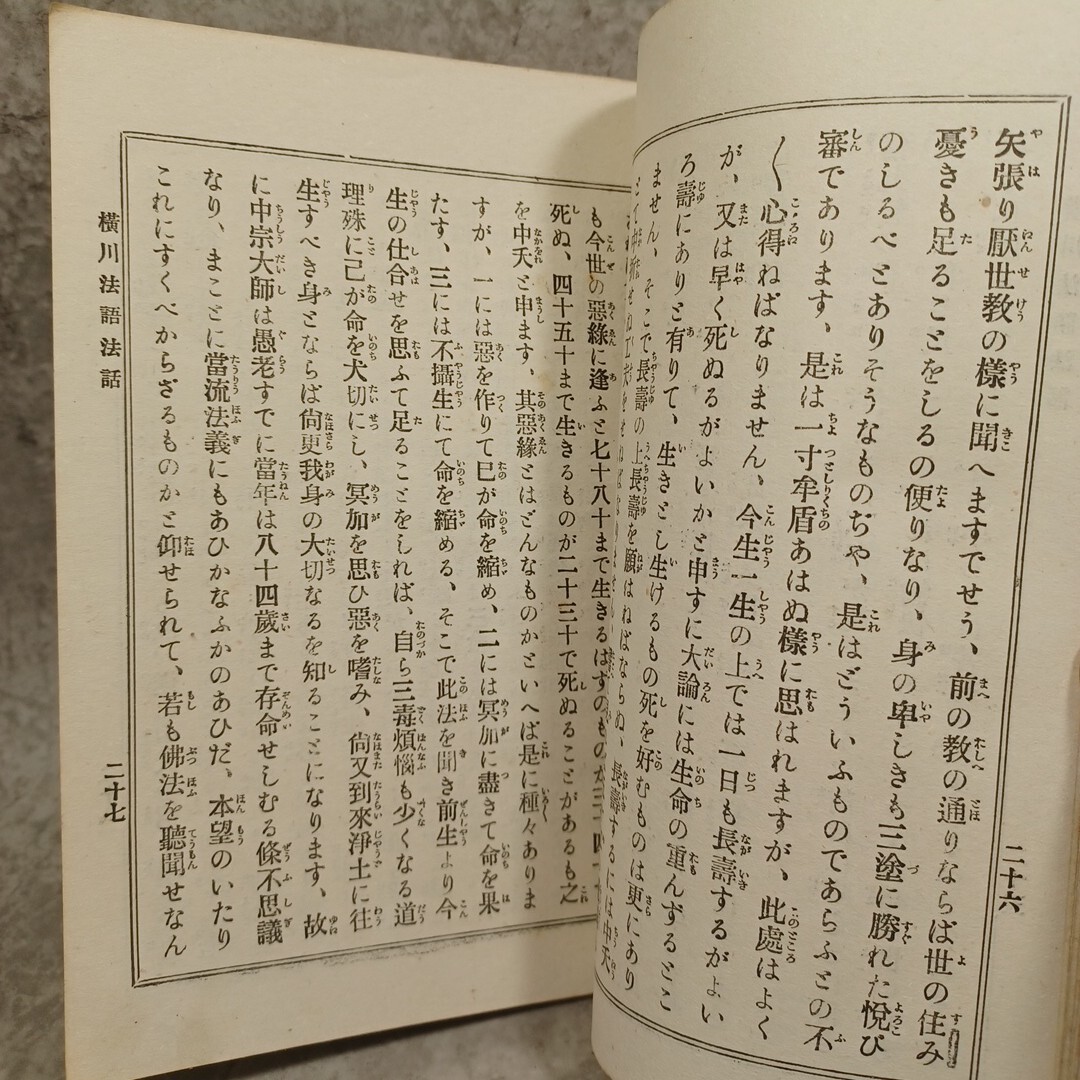 矢張り厭世教の樣に聞へますでせう、前の教の通りならば世の住み
憂きも足ることをしるの便りなり、身の卑しきも三塗に勝れた悅び
のしるべとありそうなものぢや、是はどういふものであらふとの不
審であります、是は一寸牟盾あはぬ樣に思はれますが、此處はよく
〱心得ねばなりません、今生一生の上では一日も長壽するがよい
が、又は早く死ぬるがよいかと申すに大論には生命の重んずるとこ
ろ壽にありと有りて、生きとし生けるもの死を好むものは更にあり
ません、そこで長壽の上長壽を願はねばならぬ、長壽するには中夭
二十六
も今世の惡緣に逢ふと七十八十まで生きるはずのものが三十四十
死ぬ、四十五十まで生きるものが二十三十で死ぬることがあるも之
を中夭と申ます、其惡緣とはどんなものかといへば是に種々ありま
すが、一には惡を作りて巳が命を縮め、二には冥加に盡きて命を果
たす、三には不攝生にて命を縮める、そこで此法を聞き前生より今
生の仕合せを思ふて足ることをしれば、自ら三毒煩惱も少くなる道
理殊に己が命を大切にし、冥加を思ひ惡を嗜み、尙又到來淨土に往
生すべき身とならば尙更我身の大切なるを知ることになります、故
に中宗大師は愚老すでに當年は八十四歲まで存命せしむる條不思議
なり、まことに當流法義にもあひかなふかのあひだ、本望のいたり
これにすくべからざるものかと仰せられて、若も佛法を聽聞せなん
橫川法語法話
二十七